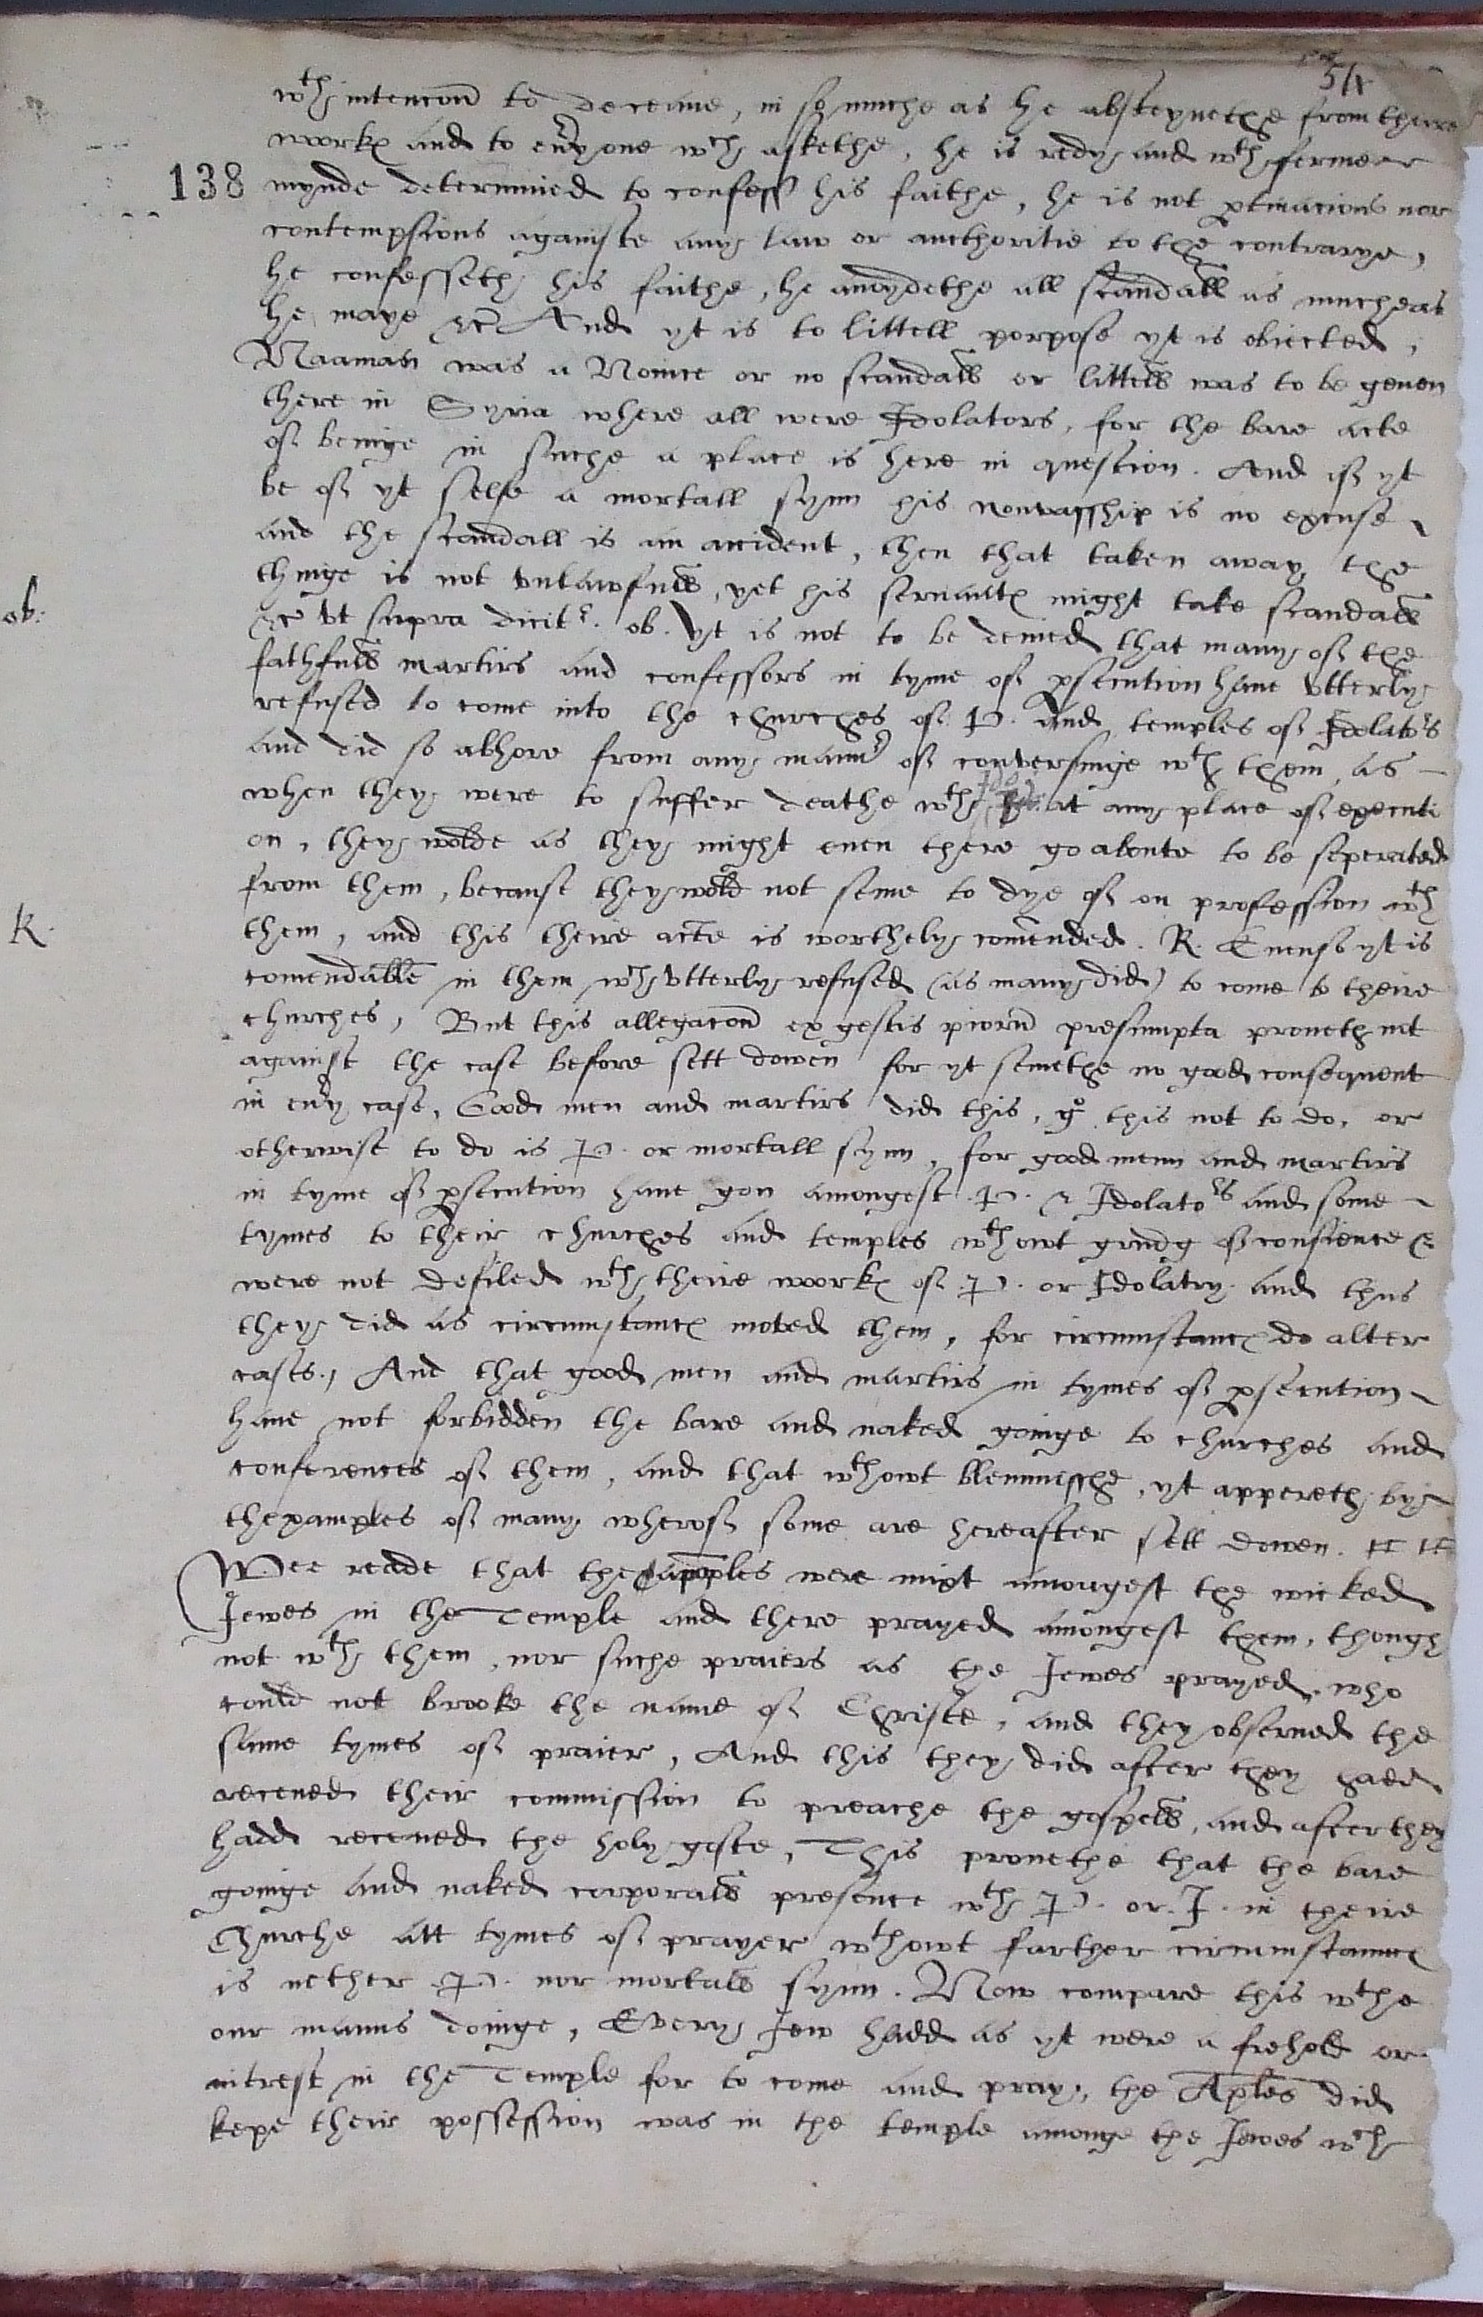 54
wth intencion to deceave, in so muche as he absteynethe from theire
workes and to every one wch askethe, he is redy and wth ferme
138
mynde determined to confess his faithe, he is not ptinacious nor
contempsious againste any law or authoritie to the contrarye,
he confesseth his faithe, he avoydethe all scandall as muche as
he maye &c And yt is to littell porpose yt is obiected,
Naaman was a Novice or no scandall or littell was to be geven
there in Syria where all were Idolators, for the bare acte
of beinge in suche a place is here in question. And if yt
be of yt selfe a mortall synn his nonwasship is no excuse
and the scandall is an accident, then that taken away the
thinge is not unlawfull, yet his servantes might take scandall
ob:
&c ut supra dicitr. ob. yt is not to be denied that many of the
fathfull martirs and confessors in tyme of psecution have utterly
refused to come into the churches of .P. and temples of Idolators
and did so abhore from any manner of conversinge wth them, as
when they were to suffer deathe wth at any place of executi
on, they wolde as they might even there go aboute to be seperated
from them, because they wold not seme to dye of on profession wth
R.
them, and this theire acte is worthely comended. R. Even so yt is
comendable in them wch utterly refused (as many did) to come to theire
churches, But this allegacon ex gestis piorum presumpta proveth not
against the case before sett downe for yt semethe no good consequent
in every case, Good men and martirs did this, go this not to do, or
otherwise to do is .P. or mortall synn, for good menn and martirs
in tyme of psecution have gon amongest .P. & Idolators and some
tymes to their churches and temples wthowt grudg of consience &
were not defiled wth theire workes of .P. or Idolatry. and thus
they did as circumstances moved them, for circumstances do alter
cases, And that good men and martirs in tymes of psecution
have not forbidden the bare and naked goinge to churches and
conferences of them, and that wthowt blemmische, yt appereth by
thexamples of many wherof some are hereafter sett downe.
Wee reade that the apples were mixt amongest the wicked
Jewes in the Temple and there prayed amongest them, though
not wth them, nor suche praiers as the Jewes prayed, who
could not brooke the name of Christe, and they observed the
same tymes of praier, And this they did after they hadd
receved their commission to preache the gospell, and after they
hadd receved the holy goste, This provethe that the bare
goinge and naked corporall presence wth .P. or .J. in theire
Churche att tymes of prayer wthowt farther circumstances
is nether .P. nor mortall synn. Now compare this wthe
our manns doinge, Every Jew hadd as yt were a frehold or
intrest in the Temple for to come and pray, the Aples did
kepe their possession was in the temple amonge the Jewes wch